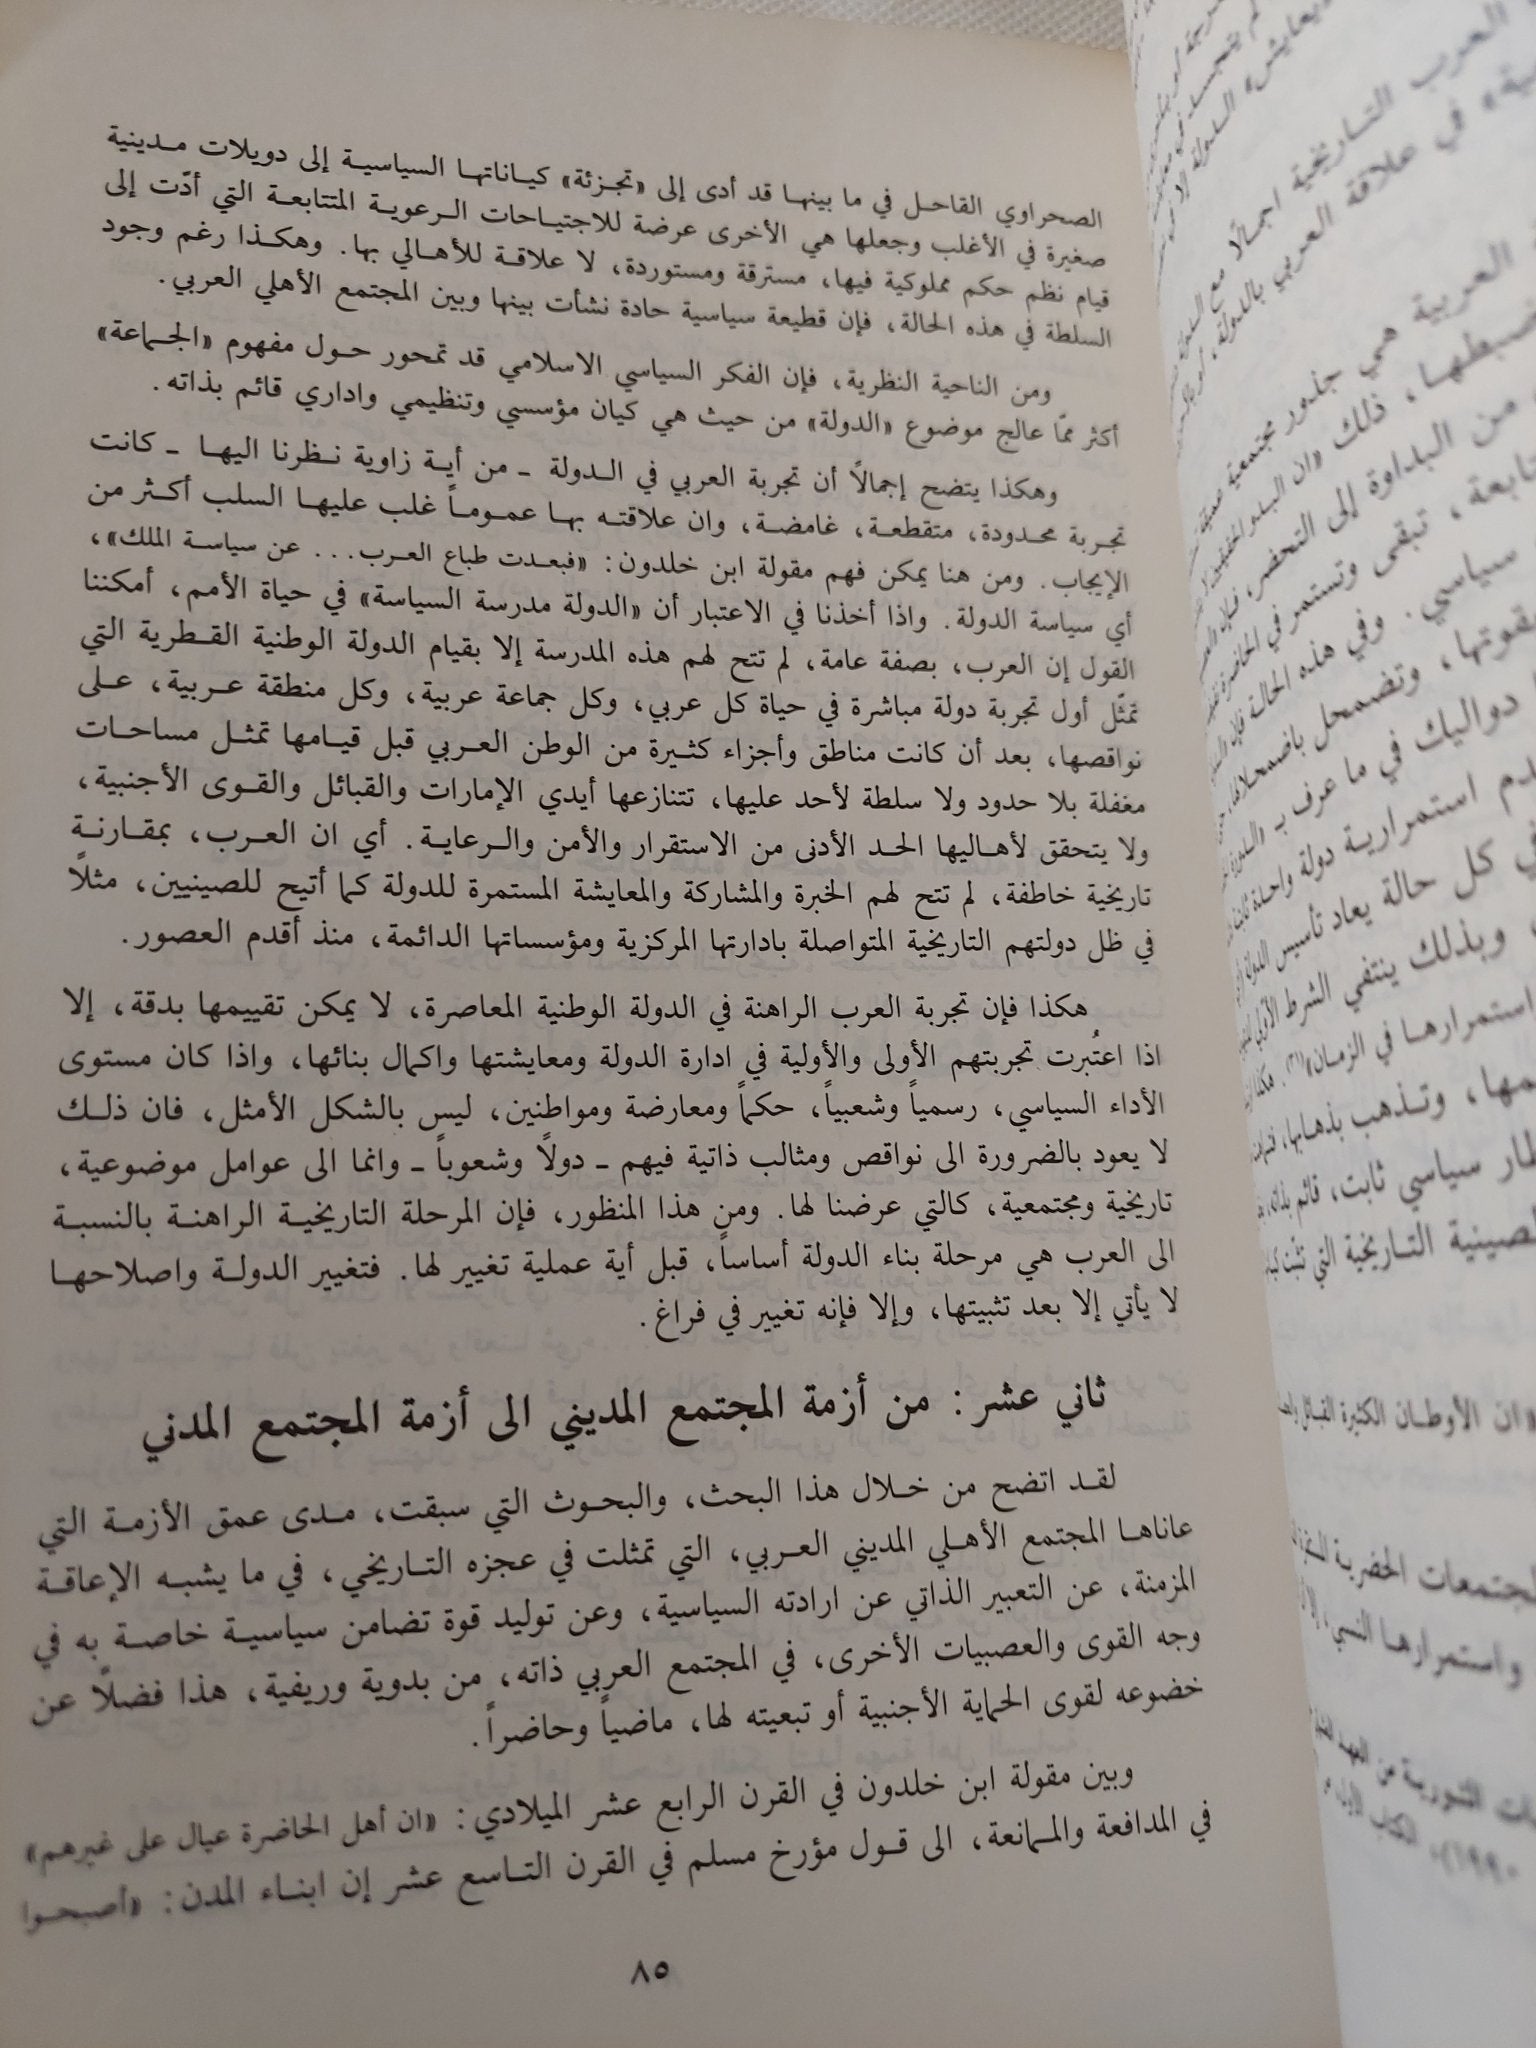 الصحراوي القاحل في ما بينها قد أدى إلى «تجزئة» كياناتها السياسية إلى دويلات مدينية
صغيرة في الأغلب وجعلها هي الأخرى عرضة للاجتياحات الرعوية المتتابعة التي أدّت إلى
قيام نظم حكم مملوكية فيها، مسترقة ومستوردة، لا علاقة للأهالي بها. وهكذا رغم وجود
السلطة في هذه الحالة، فإن قطيعة سياسية حادة نشأت بينها وبين المجتمع الأهلي العربي.
ومن الناحية النظرية، فإن الفكر السياسي الاسلامي قد تمحور حول مفهوم «الجماعة»
أكثر ممّا عالج موضوع «الدولة» من حيث هي كيان مؤسسي وتنظيمي واداري قائم بذاته.
وهكذا يتضح إجمالًا أن تجربة العربي في الدولة ـ من أية زاوية نظرنا اليها ـ كانت
تجربة محدودة، متقطعة، غامضة، وان علاقته بها عموماً غلب عليها السلب أكثر من
الإيجاب. ومن هنا يمكن فهم مقولة ابن خلدون: «فبعدت طباع العرب... عن سياسة الملك»،
أي سياسة الدولة. واذا أخذنا في الاعتبار أن «الدولة مدرسة السياسة» في حياة الأمم، أمكننا
القول إن العرب، بصفة عامة، لم تتح لهم هذه المدرسة إلا بقيام الدولة الوطنية القطرية التي
تمثّل أول تجربة دولة مباشرة في حياة كل عربي، وكل جماعة عربية، وكل منطقة عربية، على
نواقصها، بعد أن كانت مناطق وأجزاء كثيرة من الوطن العربي قبل قيامها تمثل مساحات
مغفلة بلا حدود ولا سلطة لأحد عليها، تتنازعها أيدي الإمارات والقبائل والقوى الأجنبية،
ولا يتحقق لأهاليها الحد الأدنى من الاستقرار والأمن والرعاية. أي ان العرب، بمقارنة
تاريخية خاطفة، لم تتح لهم الخبرة والمشاركة والمعايشة المستمرة للدولة كما أتيح للصينيين، مثلًا
في ظل دولتهم التاريخية المتواصلة بادارتها المركزية ومؤسساتها الدائمة، منذ أقدم العصور.
هكذا فإن تجربة العرب الراهنة في الدولة الوطنية المعاصرة، لا يمكن تقييمها بدقة، إلا
اذا اعتُبرت تجربتهم الأولى والأولية في ادارة الدولة ومعايشتها واكمال بنائها، واذا كان مستوى
الأداء السياسي، رسمياً وشعبياً، حكماً ومعارضة ومواطنين، ليس بالشكل الأمثل، فان ذلك
لا يعود بالضرورة الى نواقص ومثالب ذاتية فيهم ـ دولًا وشعوباً ـ وانما الى عوامل موضوعية،
تاريخية ومجتمعية، كالتي عرضنا لها. ومن هذا المنظور، فإن المرحلة التاريخية الراهنة بالنسبة
الى العرب هي مرحلة بناء الدولة أساساً، قبل أية عملية تغيير لها. فتغيير الدولة واصلاحها
لا يأتي إلا بعد تثبيتها، وإلا فإنه تغيير في فراغ.
ثاني عشر: من أزمة المجتمع المديني الى أزمة المجتمع المدني
لقد اتضح من خلال هذا البحث، والبحوث التي سبقت، مدى عمق الأزمة التي
عاناها المجتمع الأهلي المديني العربي، التي تمثلت في عجزه التاريخي، في ما يشبه الإعاقة
المزمنة، عن التعبير الذاتي عن ارادته السياسية، وعن توليد قوة تضامن سياسية خاصة به في
وجه القوى والعصبيات الأخرى، في المجتمع العربي ذاته، من بدوية وريفية، هذا فضلًا عن
خضوعه لقوى الحماية الأجنبية أو تبعيته لها، ماضياً وحاضراً.
وبين مقولة ابن خلدون في القرن الرابع عشر الميلادي: «ان أهل الحاضرة عيال على غيرهم»
في المدافعة والممانعة، الى قول مؤرخ مسلم في القرن التاسع عشر إن ابناء المدن: «أصبحوا
٨٥
العرب التاريخية اجمالًا مع
في علاقة العربي بالدولة،
العربية هي جذور مجتمعية
ذلك «ان البدو
من البداوة إلى التحضر،
تبقى وتستمر في
سياسي. وفي هذه الحالة فإن
بقوتها، وتضمحل باضمحلالها،
دواليك في ما عرف بـ
استمرارية دولة واحدة
في كل حالة يعاد تأسيس الدولة
وبذلك ينتفي الشرط
استمرارها في الزمان»
وتذهب بذهابها،
سياسي ثابت، قائم بذاته،
الصينية التاريخية التي
«ان الأوطان الكثيرة القبائل
المجتمعات الحضرية
واستمرارها النسبي،